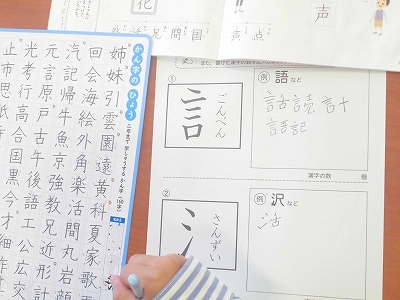 声
外 近 見 聞 国
声 点
かん字のひょう
二年生で学しゅうするかん字(160字)
姉妹引雲園遠黄科夏家歌
回会海絵外角楽活間丸岩顔
汽記帰牛魚京強教兄近形計
元言原戸古午後語工公広交
光考行高合国黒今才細作
止市思紙寺
①
言
ごんべん
例 語 など
話 読 計
語 記
漢字の数 個
②
さんずい
例 沢 など
活